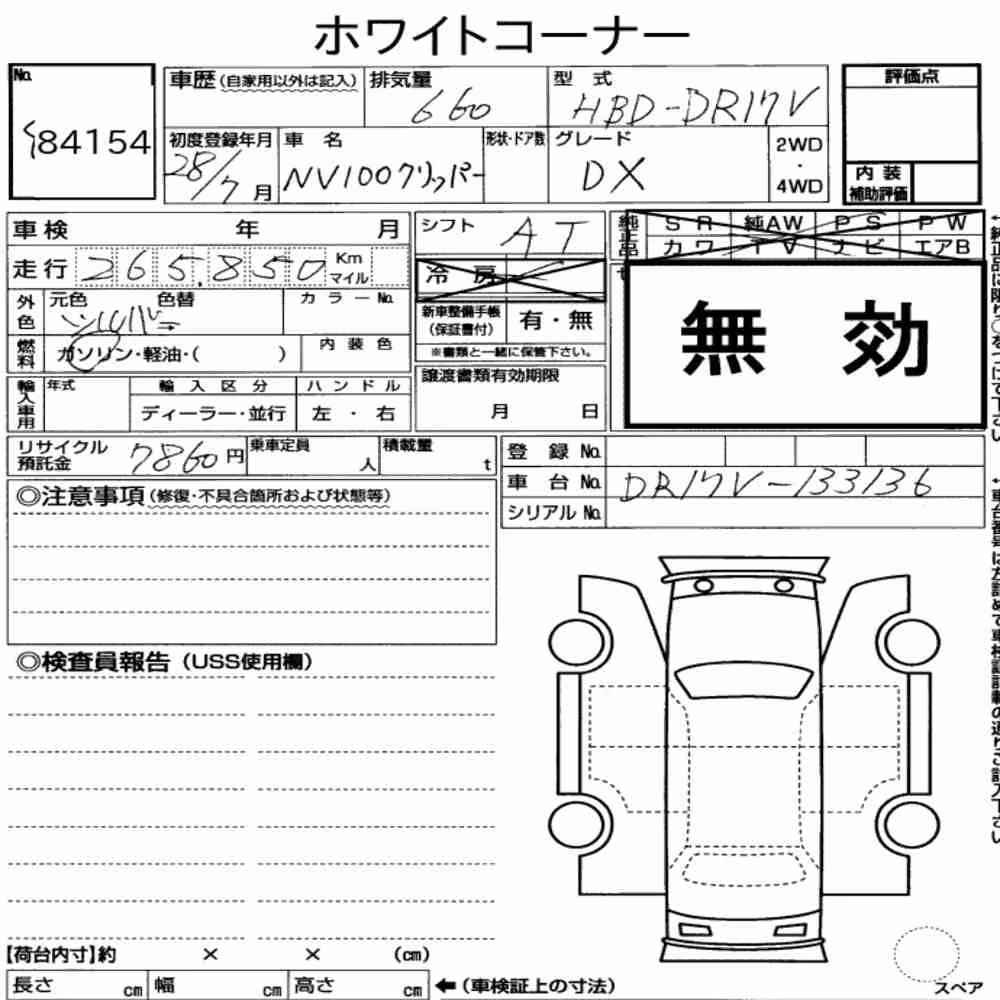 ホワイトコーナー
No.
84154
車歴(自家用以外は記入)
排気量
660
型式
HBD-DR17V
評価点
初度登録年月
28/7月
車名
NV100クリッパー
形状・ドア数
グレード
DX
2WD
・
4WD
内装
補助評価
車検 年 月
シフト
AT
純正品
SR 純AW PS PW
カワ TV ナビ エアB
走行 265,850 Km マイル
冷房
外色
元色 色替
シルバー
カラーNo.
新車整備手帳
(保証書付)
有・無
※書類と一緒に保管下さい。
無効
燃料
ガソリン・軽油・( )
内装色
輸入車用
年式
輸入区分
ディーラー・並行
ハンドル
左・右
譲渡書類有効期限
月 日
リサイクル
預託金
7860円
乗車定員
人
積載量
t
登録No.
車台No.
DR17V-133136
シリアルNo.
◎注意事項(修復・不具合箇所および状態等)
◎検査員報告(USS使用欄)
【荷台内寸】約 × × (cm)
長さ cm 幅 cm 高さ cm ←(車検証上の寸法)
スペア